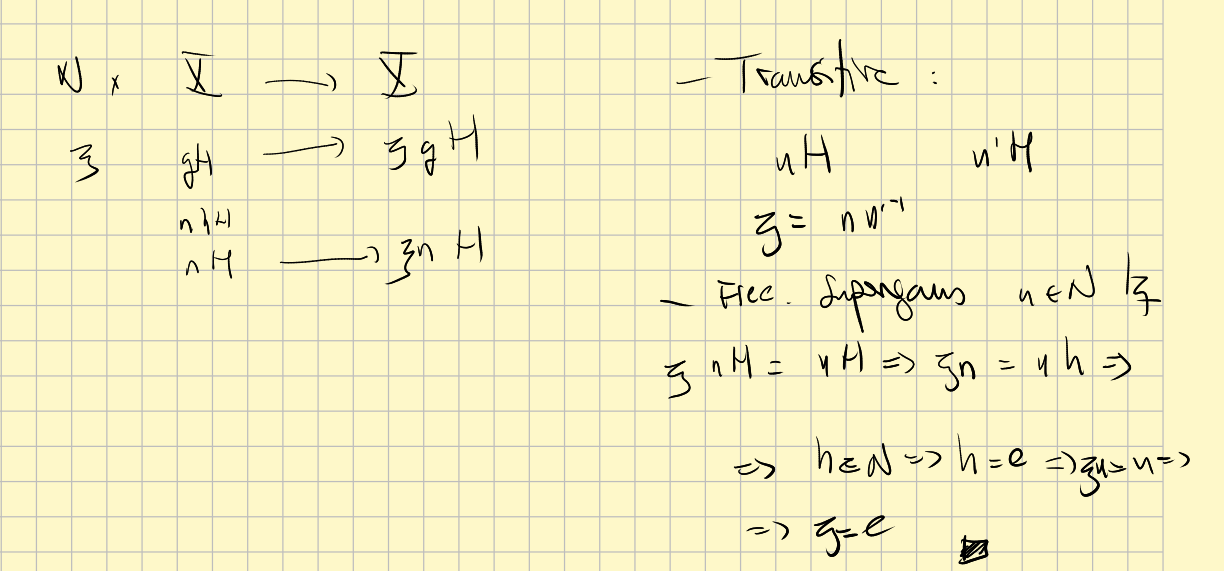 N × X → X
ξ gH → ξgH
nhH
nH → ξn H
– Transitive :
nH n'H
ξ = n n'⁻¹
– Free. Supongamos n ∈ N | ξ
ξ nH = nH ⇒ ξn = nh ⇒
⇒ h ∈ N ⇒ h = e ⇒ ξn = n ⇒
⇒ ξ = e